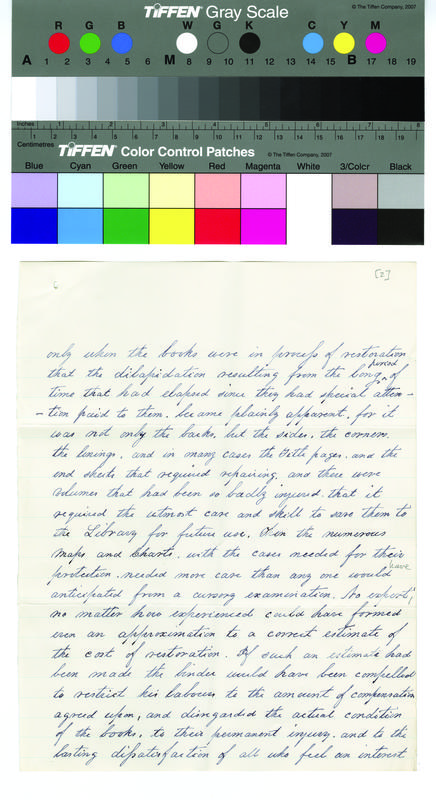 TIFFEN Gray Scale
© The Tiffen Company, 2007
R G B W G K C Y M
A 1 2 3 4 5 6 M 8 9 10 11 12 13 14 15 B 17 18 19
Inches 1 2 3 4 5 6 7 8
Centimetres 1 2 3 4 5 6 7 8 9 10 11 12 13 14 15 16 17 18 19
TIFFEN Color Control Patches
© The Tiffen Company, 2007
Blue Cyan Green Yellow Red Magenta White 3/Color Black
6 [2]
only when the books were in process of restoration
that the dilapidation resulting from the long period of
time that had elapsed since they had special atten-
-tion paid to them, became plainly apparent, for it
was not only the backs, but the sides, the corners,
the linings, and in many cases the title pages, and the
end sheets that required repairing, and there were
volumes that had been so badly injured, that it
required the utmost care and skill to save them to
the Library for future use, the numerous
maps, and Charts, with the cases needed for their
protection, needed more care than any one would have
anticipated from a cursory examination. No expert,
no matter how experienced could have formed
even an approximation to a correct estimate of
the cost of restoration. If such an estimate had
been made the binder would have been compelled
to restrict his labours to the amount of compensation
agreed upon, and disregarded the actual condition
of the books, to their permanent injury, and to the
lasting dissatisfaction of all who feel an interest